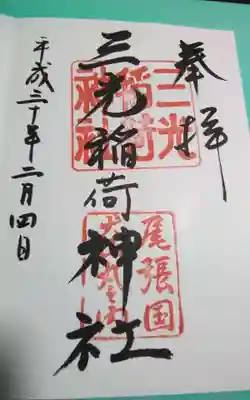 奉拝
三光稲荷神社
平成三十年二月四日
三光稲荷神社
尾張国